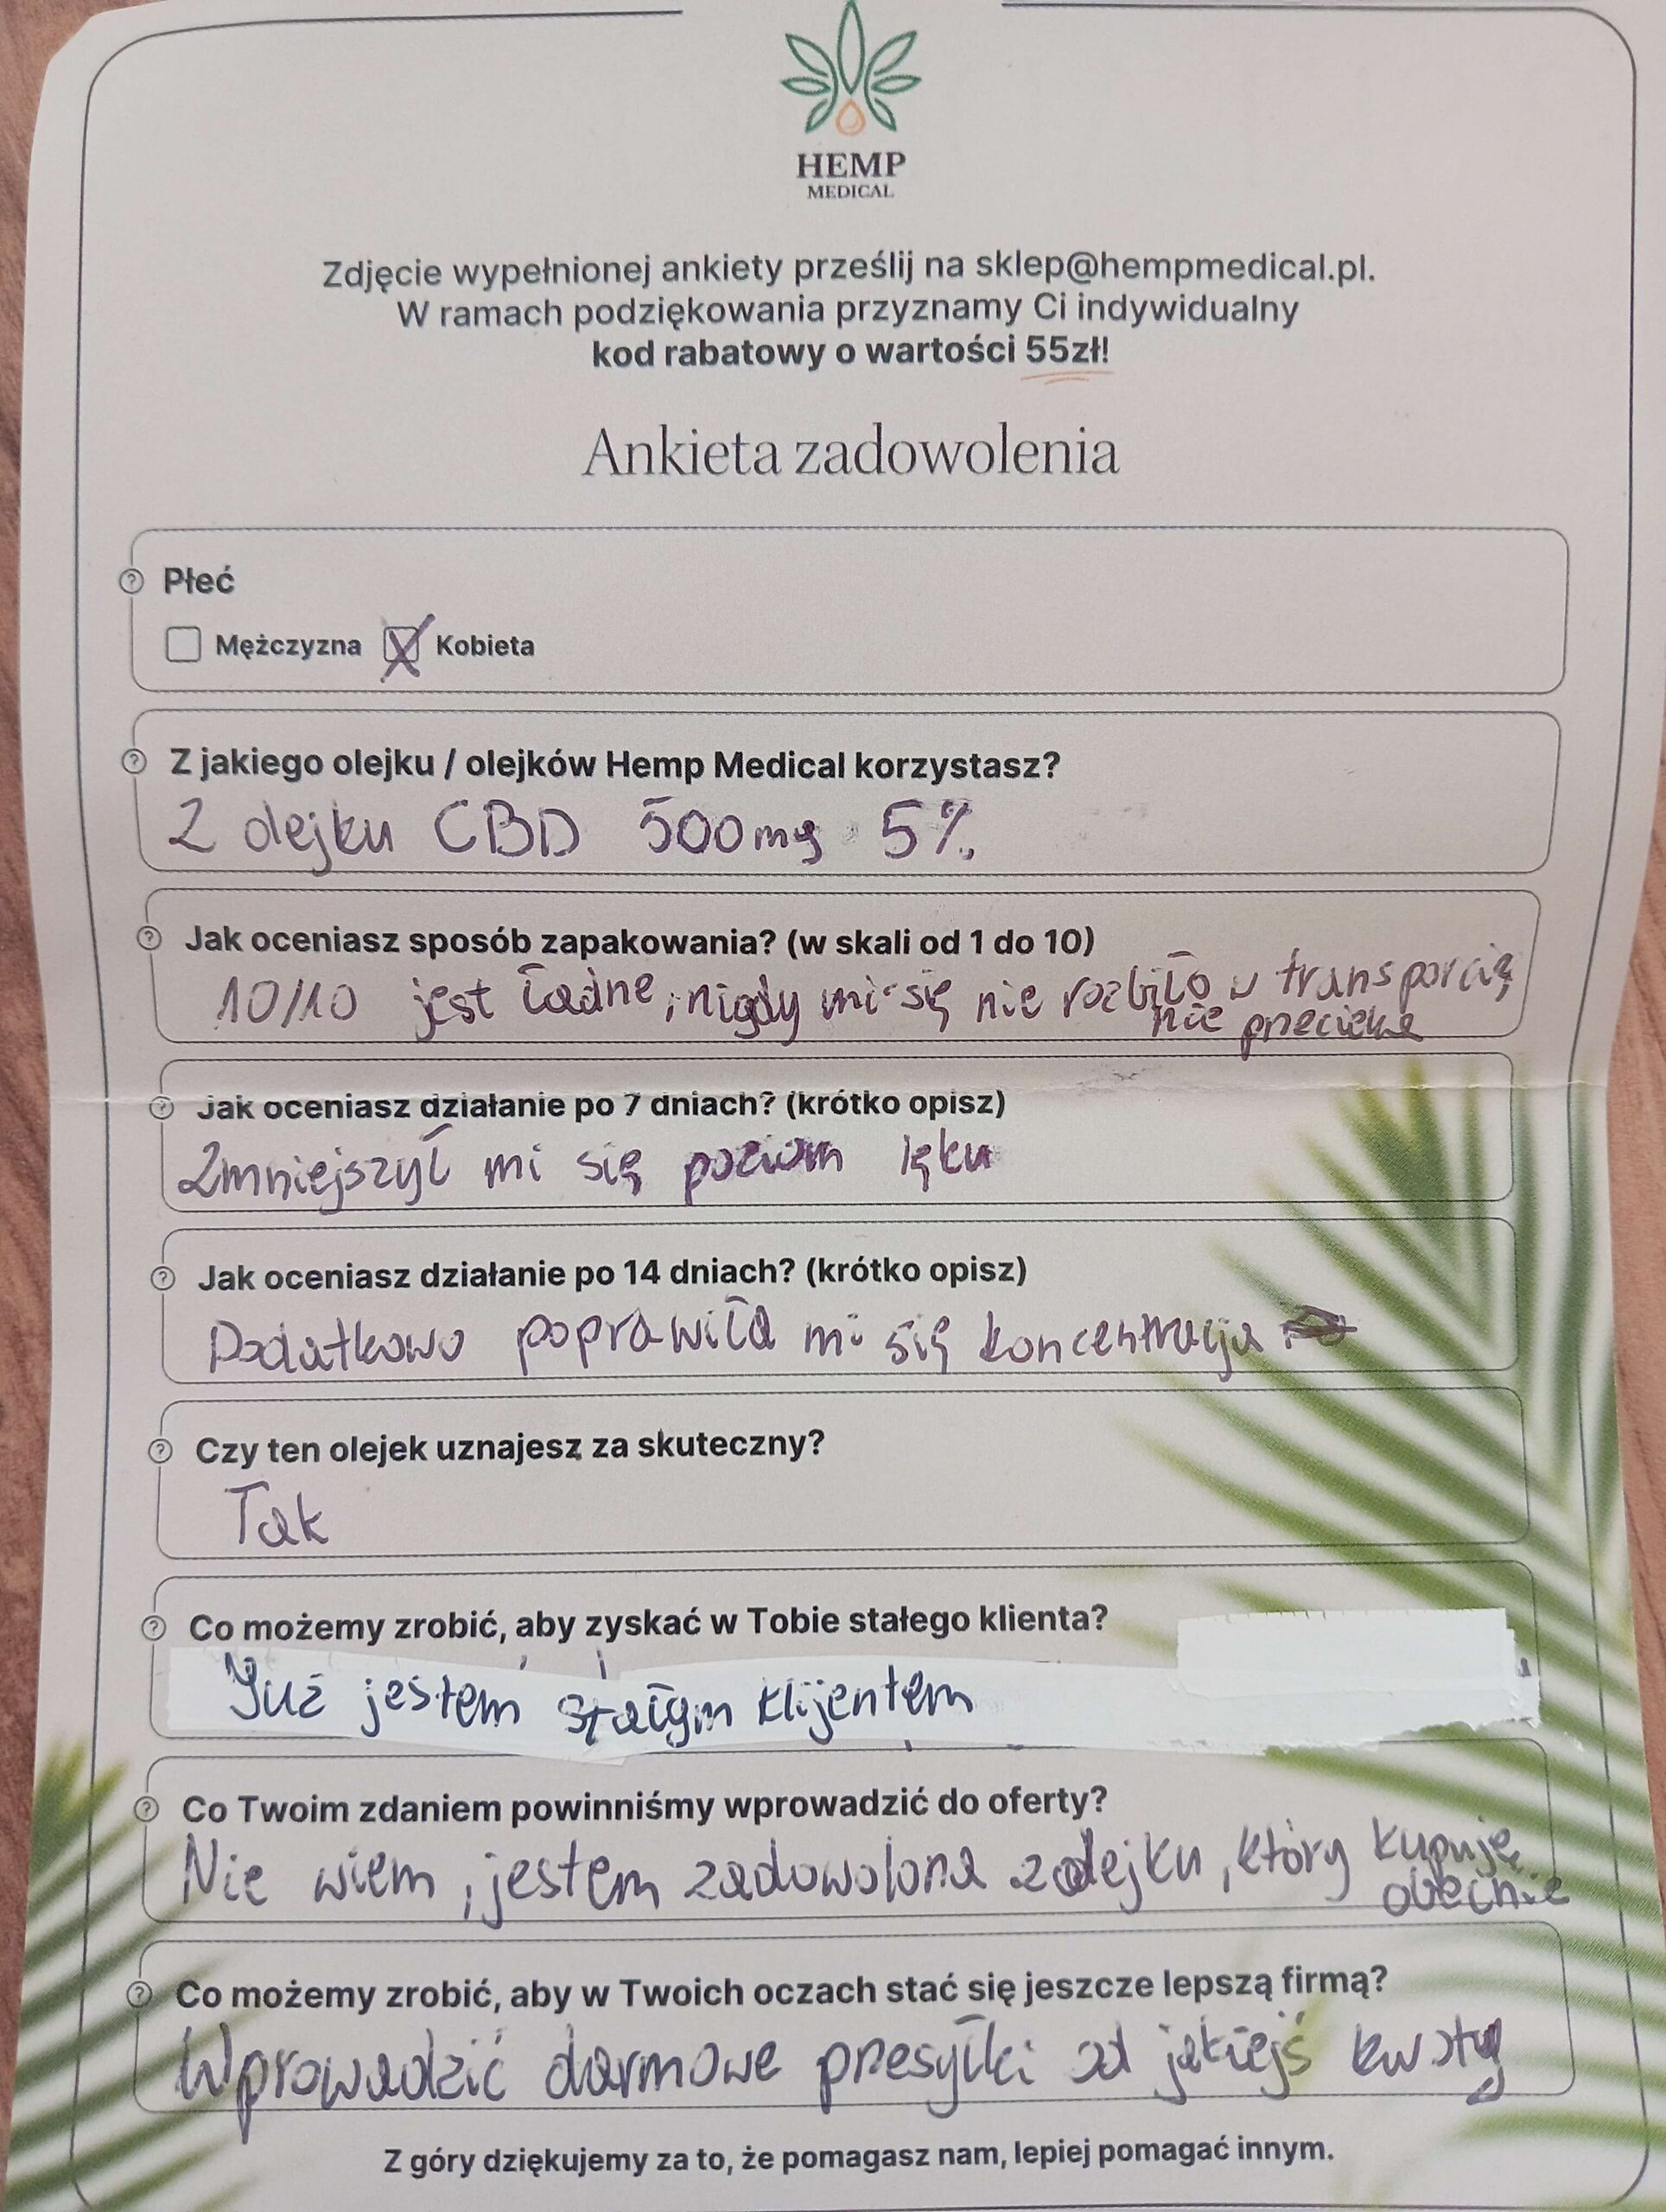 HEMP
MEDICAL
Zdjęcie wypełnionej ankiety prześlij na sklep@hempmedical.pl.
W ramach podziękowania przyznamy Ci indywidualny
kod rabatowy o wartości 55zł!
Ankieta zadowolenia
Płeć
Mężczyzna X Kobieta
Z jakiego olejku / olejków Hemp Medical korzystasz?
Z olejku CBD 500mg 5%
Jak oceniasz sposób zapakowania? (w skali od 1 do 10)
10/10 jest ładne, nigdy mi się nie rozbiło w transporcię,
nie przecieka
Jak oceniasz działanie po 7 dniach? (krótko opisz)
Zmniejszył mi się poziom lęku
Jak oceniasz działanie po 14 dniach? (krótko opisz)
Dodatkowo poprawiła mi się koncentracja
Czy ten olejek uznajesz za skuteczny?
Tak
Co możemy zrobić, aby zyskać w Tobie stałego klienta?
Już jestem stałym klijentem
Co Twoim zdaniem powinniśmy wprowadzić do oferty?
Nie wiem, jestem zadowolona z olejku, który kupuję
obecnie
Co możemy zrobić, aby w Twoich oczach stać się jeszcze lepszą firmą?
Wprowadzić darmowe przesyłki od jakiejś kwoty
Z góry dziękujemy za to, że pomagasz nam, lepiej pomagać innym.